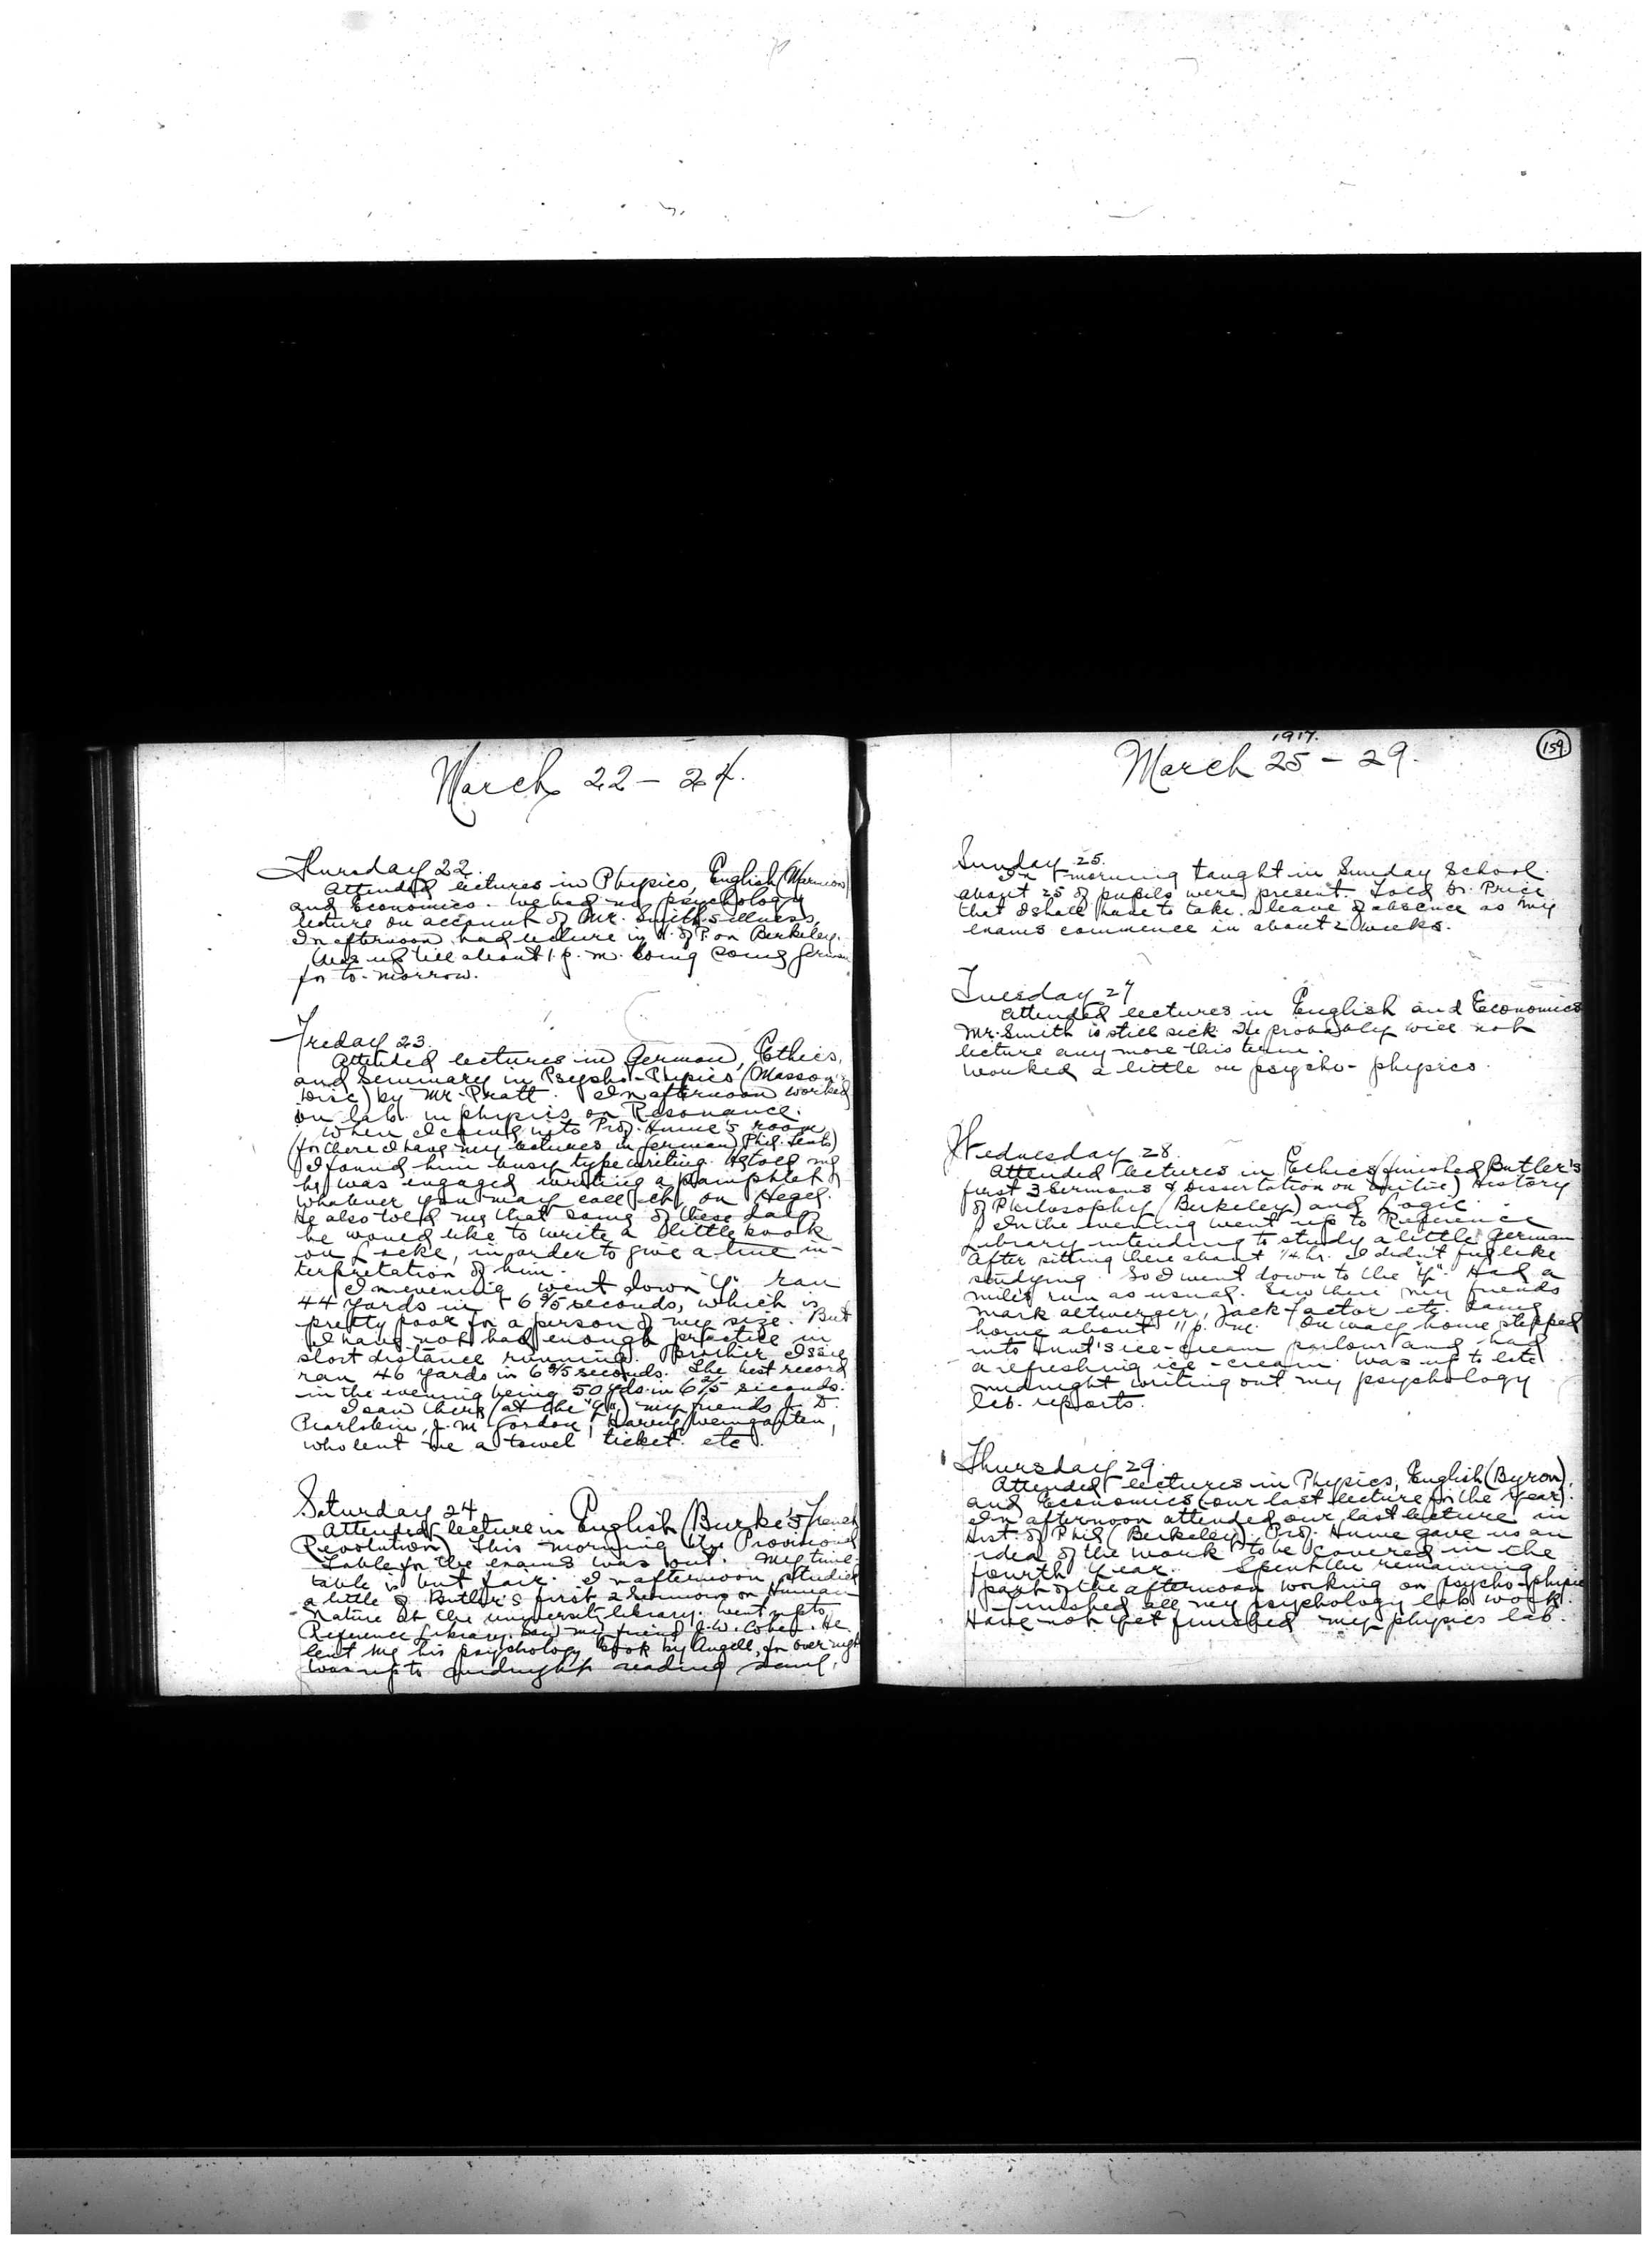 March 22 - 24.
Thursday 22.
Attended lectures in Physics, English (Marmion)
and Economics. We had no psychology
lecture on account of Mr. Smith's illness.
In afternoon had lecture in H. of P. on Berkeley.
Was up till about 1 p.m. doing some German
for to-morrow.
Friday 23.
Attended lectures in German, Ethics,
and Seminary in Psycho-Physics (Masson's
Disc) by Mr. Pratt. In afternoon worked
on lab. in physics on Resonance.
When I came into Prof. Hume's room
(for there I have my lectures in German Phil. Texts)
I found him busy typewriting. He told me
he was engaged writing a pamphlet or
whatever you may call it, on Hegel.
He also told me that some of these days
he would like to write a little book
on Locke, in order to give a true in-
terpretation of him.
In evening went down "Y" ran
44 yards in 6 3/5 seconds, which is
pretty poor for a person of my size. But
I have not had enough practice in
short distance running. Brother Issie
ran 46 yards in 6 3/5 seconds. The best record
in the evening being 50 yds. in 6 2/5 seconds.
I saw there (at the "Y") my friends J. D.
Pearlstein, J. M. Gordon, Harry Weingarten,
who lent me a towel ticket. etc.
Saturday 24
Attended lecture in English (Burke's French
Revolution) This morning the Provisional
Table for the exams was out. My time-
table is but fair. In afternoon studied
a little of Butler's first 2 Sermons on Human
Nature at the university library. Went up to
Reference Library. Saw my friend J. W. Cohen. He
lent me his psychology book by Angell, for over night
Was up to midnight reading same.
1917.
159
March 25 - 29.
Sunday 25.
In morning taught in Sunday School.
about 25 of pupils were present. Told Dr. Price
that I shall have to take a leave of absence as my
exams commence in about 2 weeks.
Tuesday 27
Attended lectures in English and Economics
Mr. Smith is still sick. He probably will not
lecture any more this term.
Worked a little on psycho-physics.
Wednesday 28.
Attended lectures in Ethics (finished Butler's
first 3 Sermons & Dissertation on Virtue) History
of Philosophy (Berkeley) and Logic.
In the evening went up to Reference
Library intending to study a little German
After sitting there about 1/4 hr. I didn't feel like
studying. So I went down to the "Y". Had a
mile's run as usual. Saw there my friends
Mark Altwerger, Jack Factor etc. Came
home about 11 p.m. On way home stepped
into Hunt's ice-cream parlour and had
a refreshing ice-cream. Was up to late
midnight writing out my psychology
lab. reports.
Thursday 29.
Attended lectures in Physics, English (Byron),
and Economics (our last lecture for the year).
In afternoon attended our last lecture in
Hist. of Phil (Berkeley). Prof. Hume gave us an
idea of the work to be covered in the
fourth year. Spent the remaining
part of the afternoon working on psycho-physics
Finished all my psychology lab work.
Have not yet finished my physics lab.